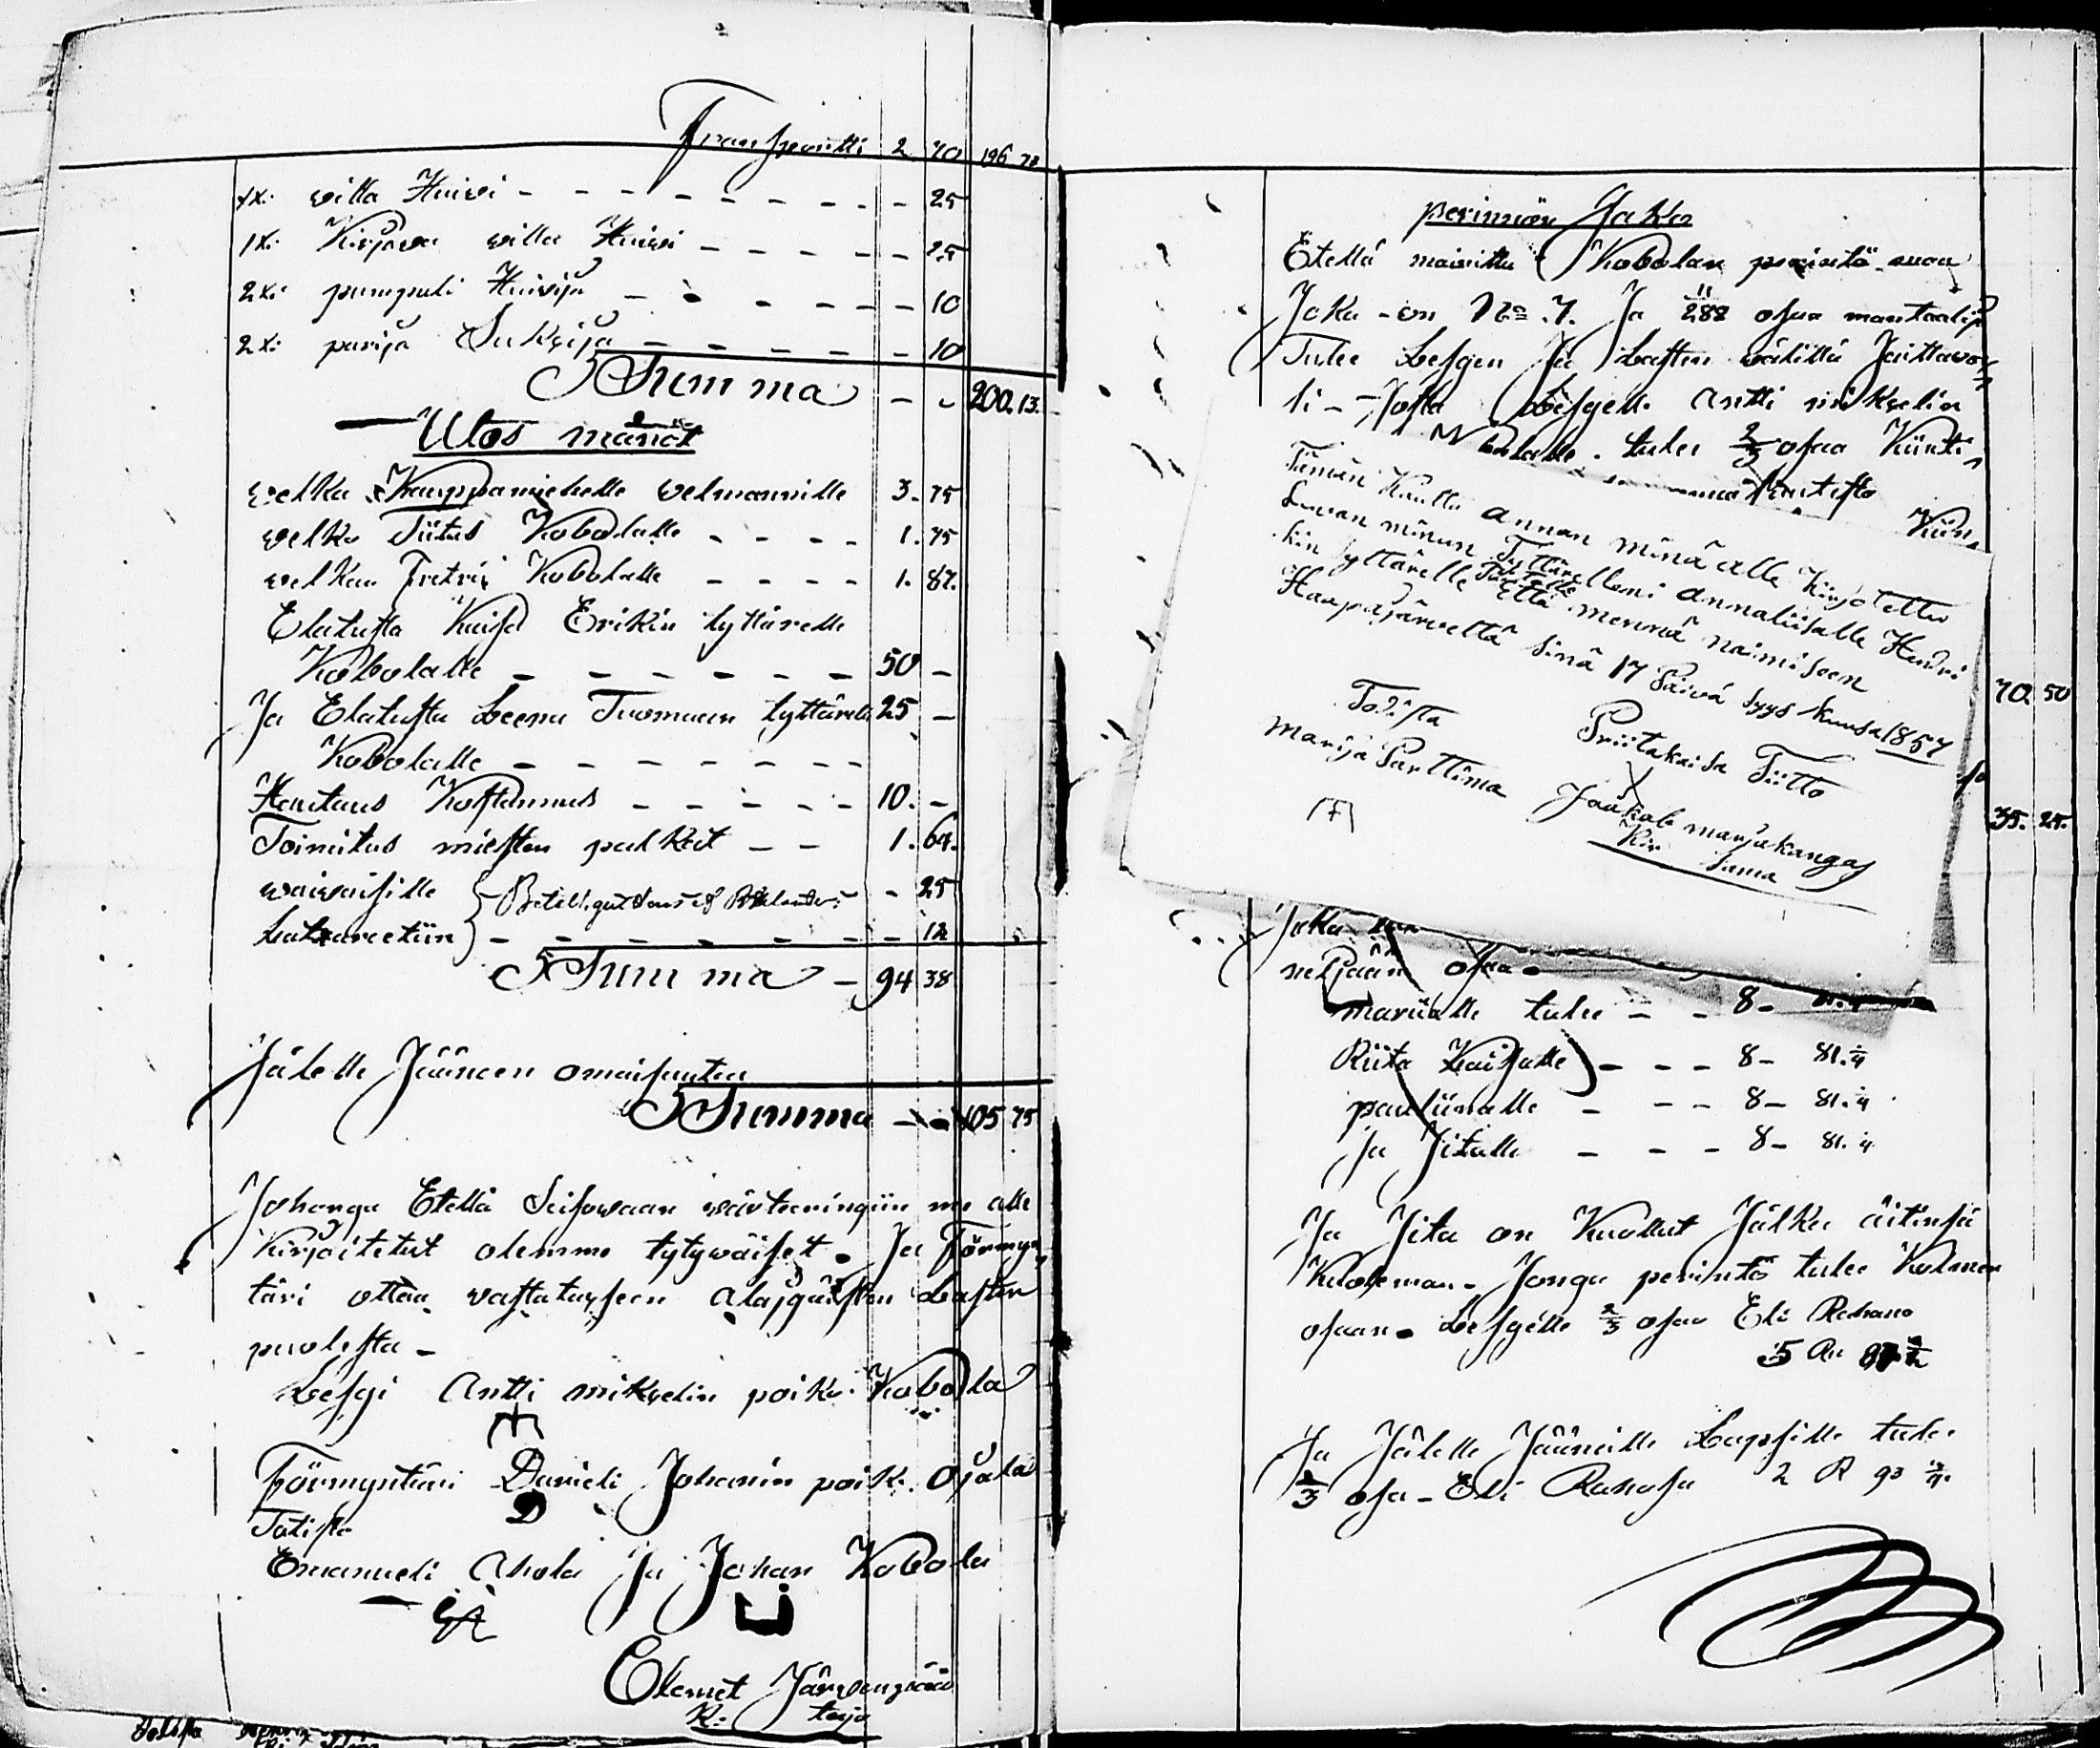 Transportti 2 70 196 78
1 K: willa Huiwi - - - - 25
1 K: Kirjawa willa Huiwi - - - - 25
2 K: pumpuli Huiwija - - - - 10
2 K: parija Sukkija - - - - 10
Summa - - 200. 13.
Ulos mänöt
welka Kauppamiehelle welmannille 3. 75
welka Tiitus Kobolalle - - - - 1. 75
welkaa Fretrix Kobolalle - - - - 1. 87.
Elatusta Kaisa Erikin tyttärelle
Kobolalle - - - - - - 50 -
Ja Elatusta Leena Tuomaan tyttärelle 25 -
Kobolalle - - - - - - -
Hautaus Kostannus - - - - - 10. -
Toimitus miesten palkat - - 1. 64.
waiwaisille - 25
Latzareetiin - - - - - - 12
Summa - 94 38
Jälelle Jääneen omaisuuten
Summa - - 105 75
Johonga Etellä Seisowaan wärteeringiin me alle
Kirjoitetut olemme tytywäiset. Ja Förmyn,
täri ottaa wastatuxseen alajgäisten Lasten
puolesta -
Lesgi Antti mikkelin poika Kobola
Förmyntäri Danieli Johanin poik. Ojala
D
Totista
Emanueli Ahola Ja Johan Kobola
Clemet Järwenpää
K: taja
Totista
perinnön Jako
Etellä mainittu Kobolan perintö maa
Joka - on No 7. Ja 11/288 osaa mantaalija
Tulee Lesgen Ja Lasten wälillä Jaittawax
si - Josta Lesgelle Antti mikkelin
tulee 2/3 osaa Kiinti,
Kiin,
Tämän Kautta annan minä alle Kirjotettu
Luwan minun Tyttärelleni annaliisalle Hendri
kin tyttärelle Että mennä naimiseen
Haapajärweltä Sinä 17 Päivä Syys kuusa 1857
Totista Priitakaisa Tiitto
Marija Parttima Jaakab marjakangas
70. 50
35. 25.
Joka
neljään osaa -
mariialle tulee - - 8 -
Riita Kaisalle - - - 8 - 81. 1/4
pauliinalle - - - 8 - 81. 1/4
Ja Jitalle - - - 8 - 81. 1/4
Ja Jita on Kuollut Jälken äitinsä
Kuoleman - Jonga perintö tulee Kolmen
osaan - Lesgelle 2/3 osaa Eli Rahano
Ja Jälelle Jääneille Lapsille tulee
1/3 osa - Eli Rahasa 2 R 93 3/4